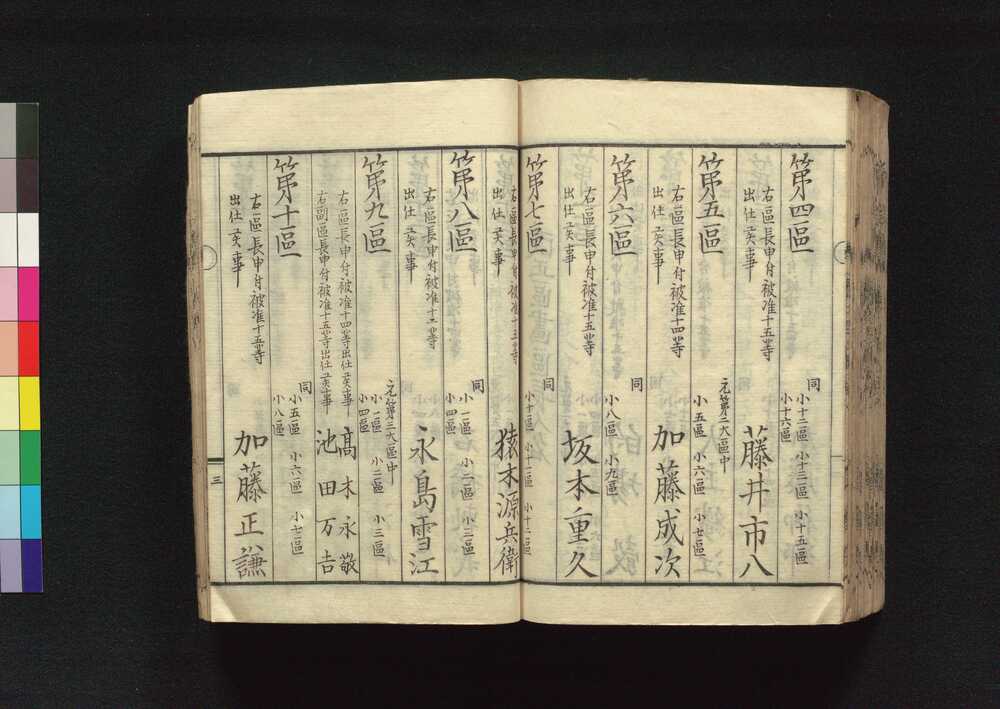 第四區
同
小十二區 小十三區 小十五區
小十六區
右區長申付被准十五等
出仕候事
藤井市八
第五區
元第二大區中
小五區 小六區 小七區
右區長申付被准十四等
出仕候事
加藤成次
第六區
同
小八區 小九區
右區長申付被准十五等
出仕候事
坂本重久
第七區
同
小十區 小十一區 小十二區
右區長申付被准十五等
出仕候事
猿木源兵衛
第八區
同
小一區 小二區 小三區
小四區
右區長申付被准十二等
出仕候事
永島雪江
第九區
元第三大區中
小一區 小二區 小三區
小四區
右區長申付被准十四等出仕候事
髙木永敬
右副區長申付被准十五等出仕候事
池田万吉
第十區
同
小五區 小六區 小七區
小八區
右區長申付被准十五等
出仕候事
加藤正謙
三